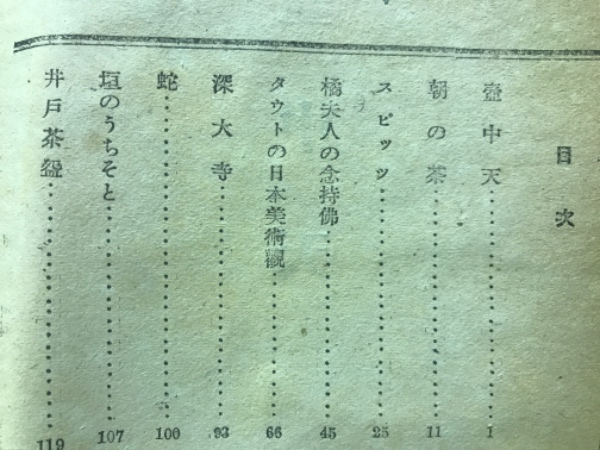 目次
壺中天 1
朝の茶 11
スピッツ 25
橘夫人の念持佛 45
タウトの日本美術觀 66
深大寺 93
蛇 100
垣のうちそと 107
井戸茶盌 119